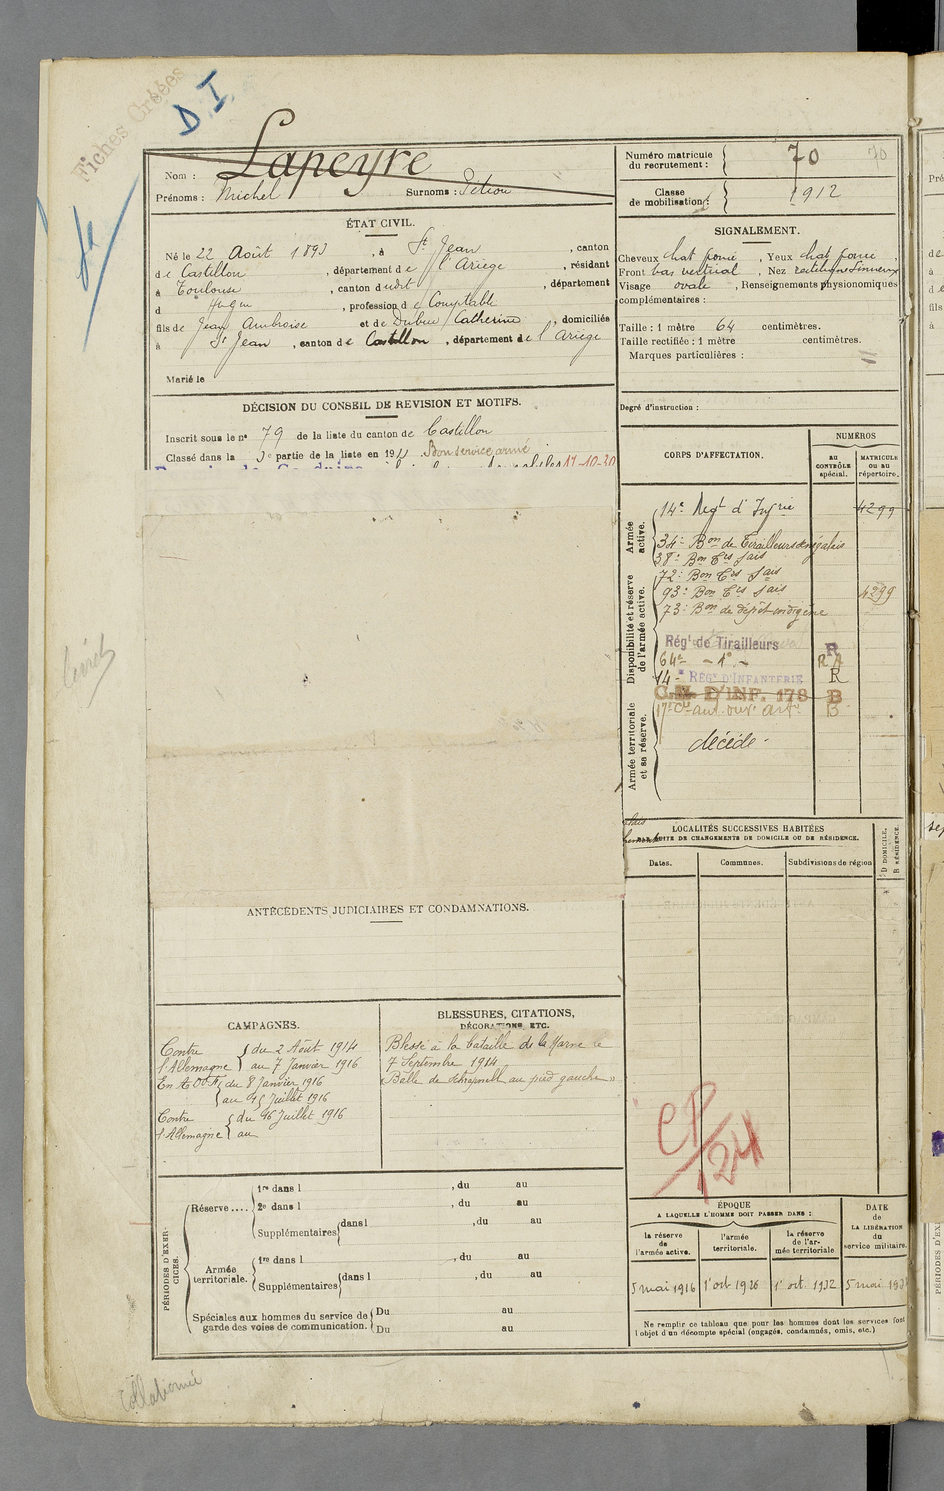 Fiches Créées
D.I.
Nom : Lapeyre
Prénoms : Michel Surnoms :
Numéro matricule du recrutement : 70
70
Classe de mobilisation : 1912
ÉTAT CIVIL.
Né le 22 Août 1893, à St Jean, canton
de Castillon, département de l'Ariège, résidant
à Toulouse, canton dudit, département
d, profession de Comptable
fils de Jean Ambroise et de Catherine, domiciliés
à St Jean, canton de Castillon, département de l'Ariège
Marié le
SIGNALEMENT.
Cheveux chat foncé, Yeux chat foncé,
Front bas vertical, Nez rectiligne Sinueux
Visage ovale, Renseignements physionomiques
complémentaires :
Taille : 1 mètre 64 centimètres.
Taille rectifiée : 1 mètre centimètres.
Marques particulières :
Degré d'instruction :
DÉCISION DU CONSEIL DE REVISION ET MOTIFS.
Inscrit sous le no 79 de la liste du canton de Castillon
Classé dans la partie de la liste en 191 Bon service armé
17-10-30
CORPS D'AFFECTATION.
NUMÉROS
AU CONTRÔLE spécial.
MATRICULE ou au répertoire.
Armée active.
14e Regt d'Infrie 4299
34e Bon de Tirailleurs Sénégalais
38e Bon Tis Sais
Disponibilité et réserve de l'armée active.
72e Bon Tis Sais
93e Bon Tis Sais 4299
73e Bon de dépôt indigène
Régt de Tirailleurs R
64e - 1o - RA
14e RÉGt D'INFANTERIE R
C.M. D'INF. 178 B
Armée territoriale et sa réserve.
17e Cie aut. ouv. art. B
décédé.
LOCALITÉS SUCCESSIVES HABITÉES
PAR SUITE DE CHANGEMENTS DE DOMICILE OU DE RÉSIDENCE.
Dates. Communes. Subdivisions de région
D DOMICILE.
R RÉSIDENCE.
ANTÉCÉDENTS JUDICIAIRES ET CONDAMNATIONS.
CAMPAGNES.
Contre l'Allemagne { du 2 Août 1914
au 7 Janvier 1916
En A.O.F. { du 8 Janvier 1916
au 15 Juillet 1916
Contre l'Allemagne { du 16 Juillet 1916
au
BLESSURES, CITATIONS,
DÉCORATIONS, ETC.
Blessé à la bataille de la Marne le
7 Septembre 1914
"Balle de schrapnell au pied gauche"
CP/124
PÉRIODES D'EXERCICES.
Réserve.... 1re dans l , du au
2e dans l , du au
Supplémentaires dans l , du au
Armée territoriale. 1re dans l , du au
Supplémentaires dans l , du au
Spéciales aux hommes du service de garde des voies de communication. Du au
Du au
ÉPOQUE
A LAQUELLE L'HOMME DOIT PASSER DANS :
la réserve de l'armée active.
l'armée territoriale.
la réserve de l'armée territoriale
DATE de LA LIBÉRATION du service militaire.
5 mai 1916 1er oct 1926 1er oct. 1932 5 mai
Ne remplir ce tableau que pour les hommes dont les services font
l'objet d'un décompte spécial (engagés, condamnés, omis, etc.)
Collationné